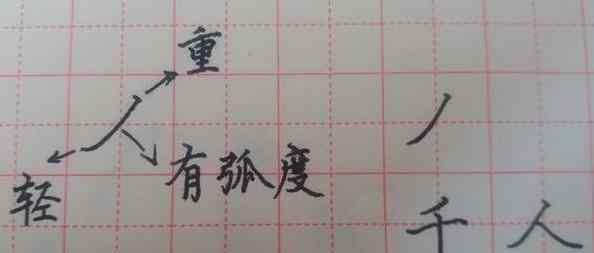 重
丿
有弧度
轻
千 人